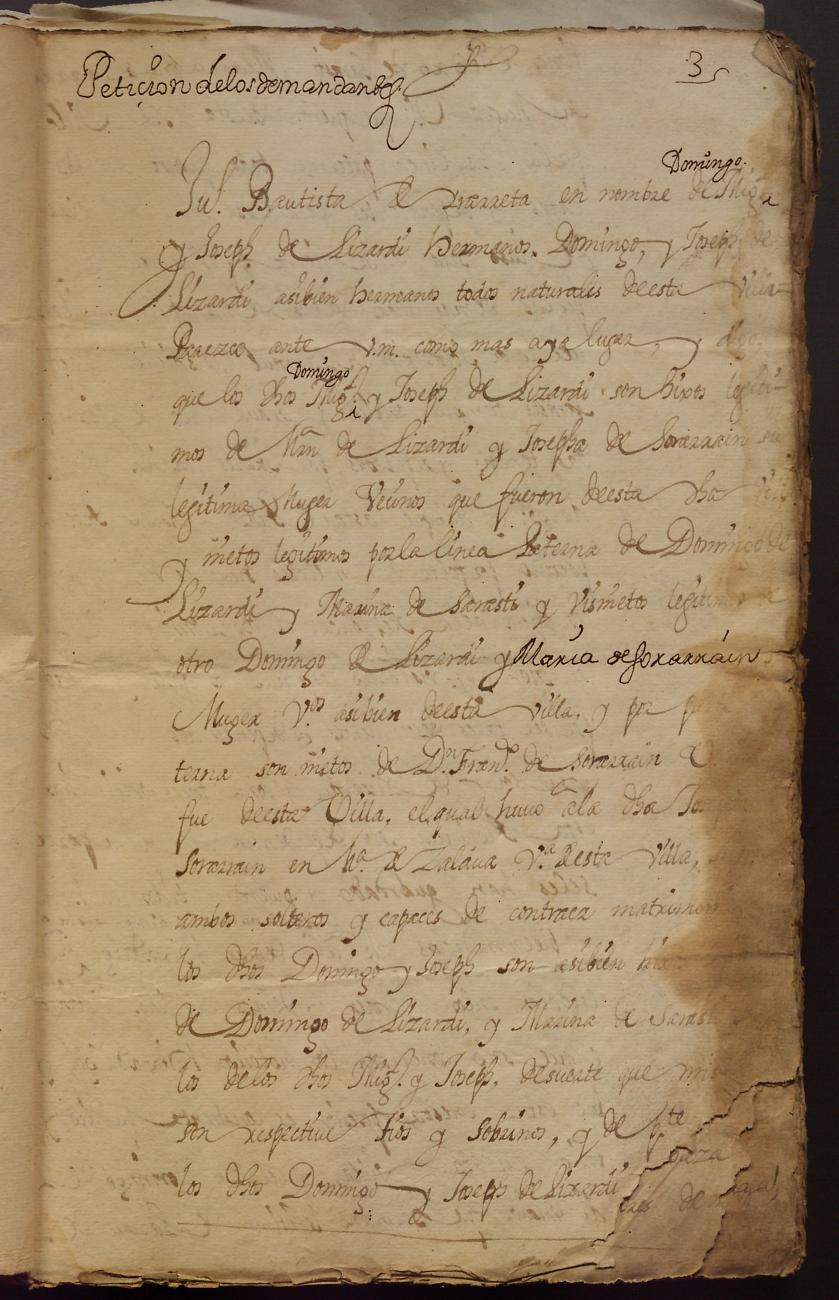 Petiçion delos demandantes
3
Domingo
Ju.º Bautista de Yrarreta en nombre de Mig.l
y Joseph de Lizardi hermanos. Domingo, y Joseph de
Lizardi asibien hermanos todos naturales deesta villa
Parezco ante v.m. como mas aya lugar, y digo
Domingo
que los dhos Mig.l y Joseph de Lizardi son hixos legiti-
mos de Mrn de Lizardi y Josepha de Sorarrain su
legitima Muger Vecinos que fueron deesta dha villa
y nietos legitimos por la linea Paterna de Domingo de
Lizardi y Marina de Sarasti y visnietos legitimos de
otro Domingo de Lizardi y Maria de Sorarrain
Muger V.os asibien deesta villa, y por
terna son nietos de D.n Fran.co de Sorarrain
fue deesta Villa, el qual huvo ala dha
Sorarrain en M.a de Zalava V.a deesta villa,
ambos solteros y capaces de contraer matrimon
los dhos Domingo y Joseph son asibien
de Domingo de Lizardi, y Marina de Sarasti
los delos dhos Mig.l y Joseph, desuerte que mis
son respective tios y sobrinos, y de pte
los dhos Domingo y Joseph de Lizardi